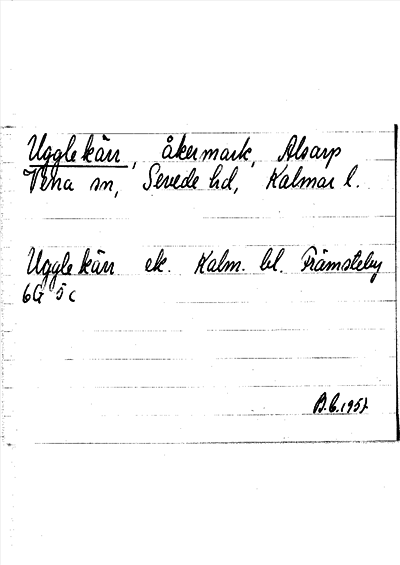 Ugglekärr, åkermark, Alsarp
Vena sn, Sevede hd, Kalmar l.
Uggle kärr ek. Kalm. bl. Främsteby
6G 5c
B.C. 1957